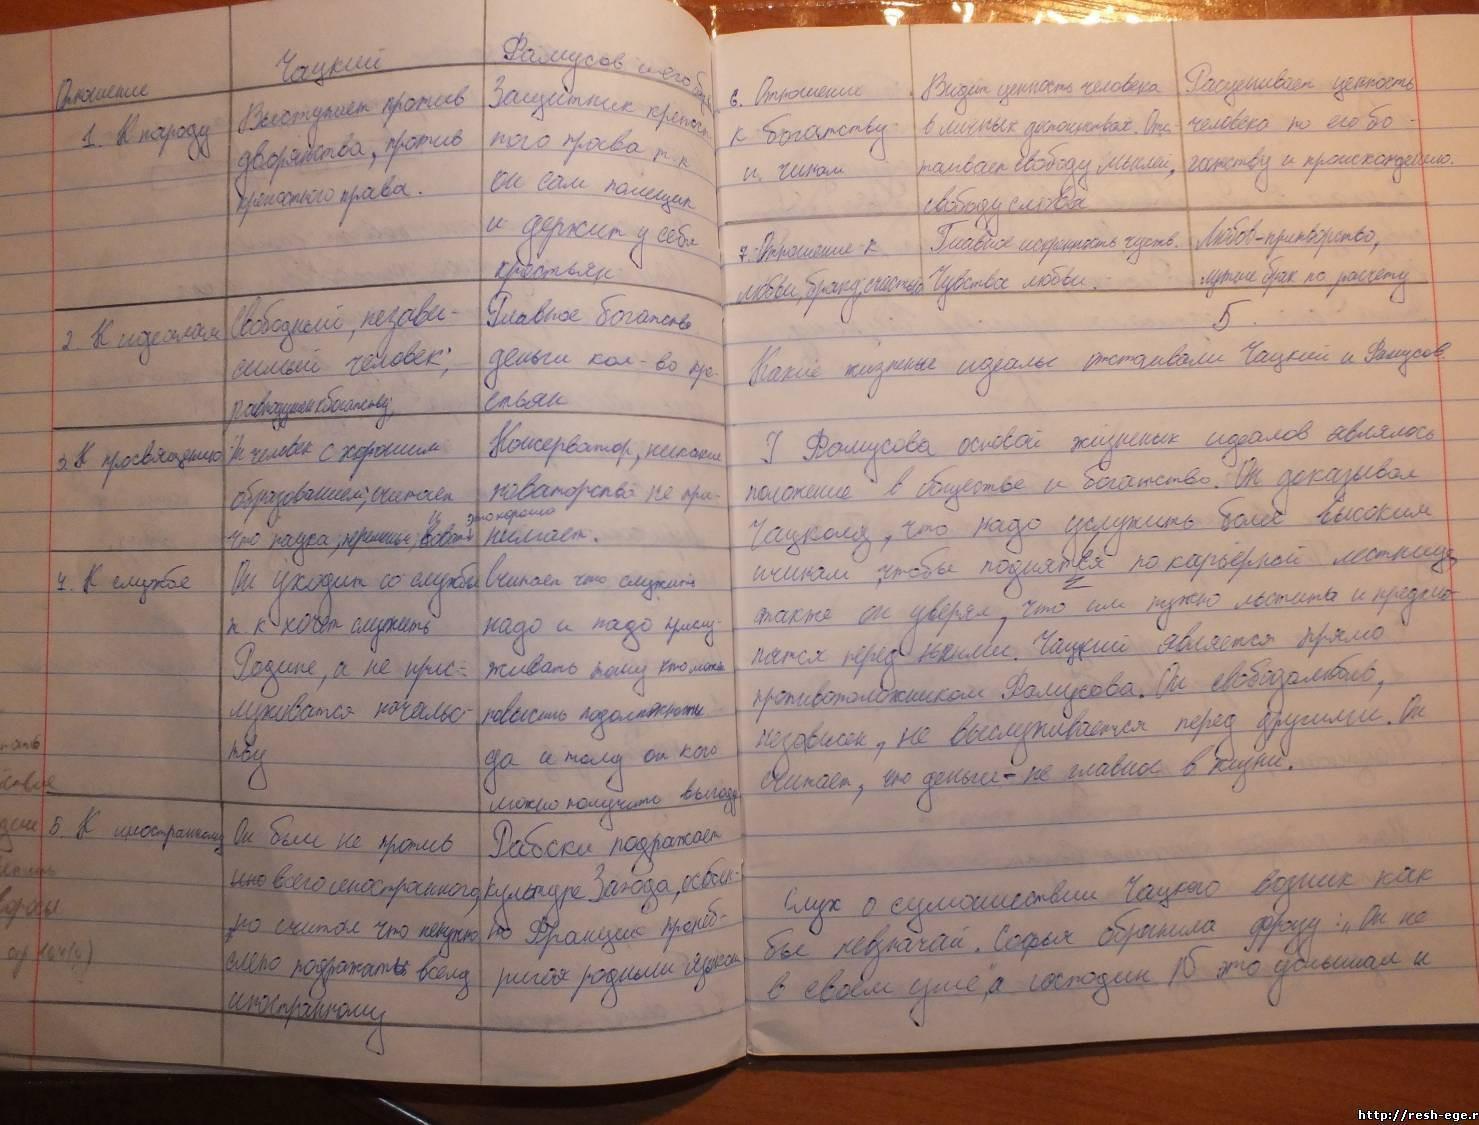 Отношение
Чацкий
Фамусов и его
1. К народу
Выступает против
дворянства, против
крепостного права.
Защитник крепост
ного права т к
он сам помещик
и держит у себя
крестьян
2. К идеалам
Свободный, незави-
симый человек;
равнодушен к богатству;
Главное богатство
деньги кол-во кре-
стьян
3. К просвящению
человек с хорошим
образованием, считает
что наука,
и это хорошо
Консерватор, никакие
новаторства не при-
нимает.
4. К службе
Он уходит со службы
т к хочет служить
Родине, а не прис-
луживатся начальс-
тву
считает что служить
надо и надо прислу-
живать тому кто може
повысить по должности
да и тому от кого
можно получить выгоду
5. К иностранному
Он был не против
всего иностранного,
но считал что ненужно
слепо подражать всему
иностранному
Рабски подражает
культуре Запада, особен-
но Франции преneб-
ригая родными языком
стр 164(4)
6. Отношение
к богатству
и чинам
Видит ценность человека
в личных достоинствах. Отс-
таивает свободу мыслей,
свободу слова
Расценивает ценность
человека по его бо-
гатству и происхождению.
7. Отношение к
любви, браку, счастью
Главное искренность чуств.
Чувства любви.
Любов-притворство,
лучше брак по расчету
5
Какие жизненые идеалы отстаивали Чацкий и Фамусов.
У Фамусова основой жизненых идеалов являлось
положение в обществе и богатство. Он доказывал
Чацкому, что надо услужить более высоким
чинам, чтобы поднятся по карьерной лестнице,
также он уверял, что им нужно льстить и
перед ними. Чацкий является прямо
противоположником Фамусова. Он свободолюбив,
независем, не выслуживается перед другими. Он
считает, что деньги - не главное в жизни.
Слух о сумошествии Чацкого возник как
бы невзначай. Софья обранила фразу: „Он не
в своем уме", а господин N это услышал и
http://resh-ege.r